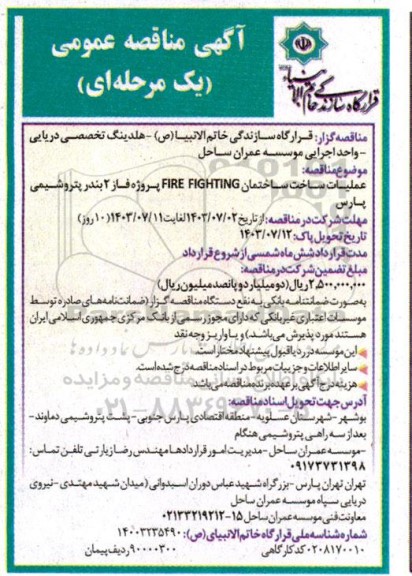 آگهی مناقصه عمومی
(یک مرحله‌ای)
قرارگاه سازندگی خاتم الانبیاء
مناقصه‌گزار: قرارگاه سازندگی خاتم الانبیا(ص) - هلدینگ تخصصی دریایی
- واحد اجرایی موسسه عمران ساحل
موضوع مناقصه:
عملیات ساخت ساختمان FIRE FIGHTING پروژه فاز ۲ بندر پتروشیمی
پارس
مهلت شرکت در مناقصه: از تاریخ ۱۴۰۳/۰۷/۰۲ لغایت ۱۴۰۳/۰۷/۱۱ (۱۰ روز)
تاریخ تحویل پاک: ۱۴۰۳/۰۷/۱۲
مدت قرارداد شش ماه شمسی از شروع قرارداد
مبلغ تضمین شرکت در مناقصه:
۲,۵۰۰,۰۰۰,۰۰۰ ریال (دو میلیارد و پانصد میلیون ریال)
به صورت ضمانتنامه بانکی به نفع دستگاه مناقصه گزار (ضمانت نامه های صادره توسط
موسسات اعتباری غیربانکی که دارای مجوز رسمی از بانک مرکزی جمهوری اسلامی ایران
هستند مورد پذیرش می باشد) و یا واریز وجه نقد
این موسسه در رد یا قبول پیشنهاد مختار است.
سایر اطلاعات و جزییات مربوط در اسناد مناقصه درج شده است.
هزینه درج آگهی بر عهده برنده مناقصه می باشد.
آدرس جهت تحویل اسناد مناقصه:
بوشهر - شهرستان عسلویه - منطقه اقتصادی پارس جنوبی - پشت پتروشیمی دماوند -
بعد از سه راهی پتروشیمی هنگام
- موسسه عمران ساحل - مدیریت امور قراردادها مهندس رضا زیارتی تلفن تماس:
۰۹۱۷۳۷۳۱۳۹۸
تهران تهران پارس - بزرگراه شهید عباس دوران اسیدوانی (میدان شهید مهتدی - نیروی
دریایی سپاه موسسه عمران ساحل
معاونت فنی موسسه عمران ساحل ۱۵-۰۲۱۳۳۲۱۹۲۱۲
شماره شناسه ملی قرارگاه خاتم الانبیای (ص): ۱۴۰۰۳۲۳۵۴۹۰
۰۲۰۸۱۷۰۰۱۰ کد کارگاهی ۹۰۰۰۰۳۰۰ ردیف پیمان